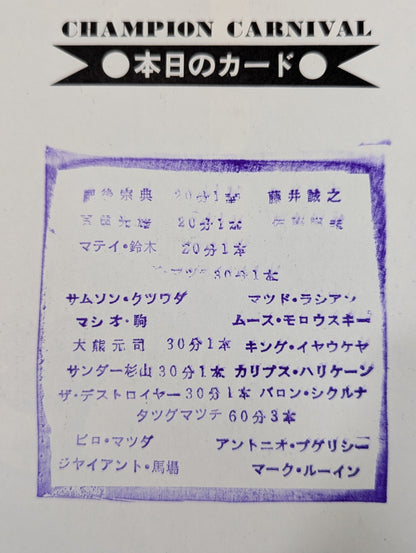 CHAMPION CARNIVAL
本日のカード
肥後宗典 20分1本 藤井誠之
20分1本
マティ・鈴木 20分1本
30分1本
サムソン・クツワダ マツド・ラシアン
マシオ・駒 ムース・モロウスキー
大熊元司 30分1本 キング・イヤウケヤ
サンダー杉山 30分1本 カリプス・ハリケーン
ザ・デストロイヤー 30分1本 バロン・シクルナ
タツグマツチ 60分3本
ヒロ・マツダ アントニオ・プゲリシー
ジヤイアント・馬場 マーク・ルーイン